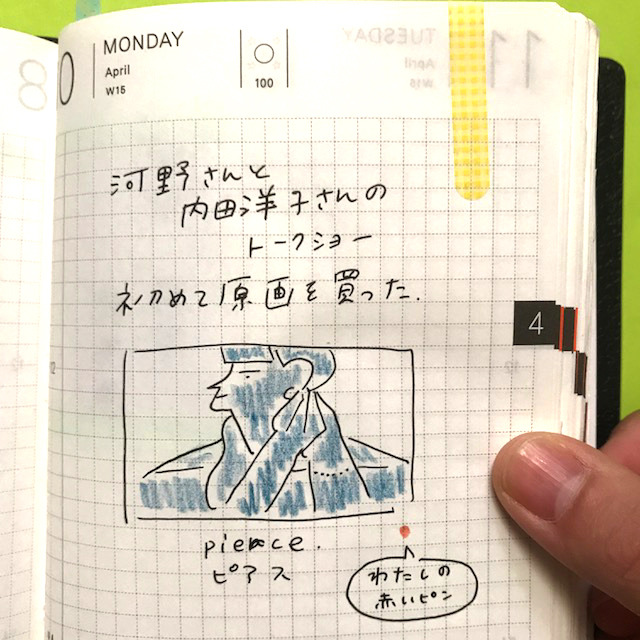 8
10
MONDAY
April
W15
100
TUESDAY
11
April
W15
河野さんと
内田洋子さんの
トークショー
初めて原画を買った.
4
12
pierce.
ピアス
わたしの
赤いピン